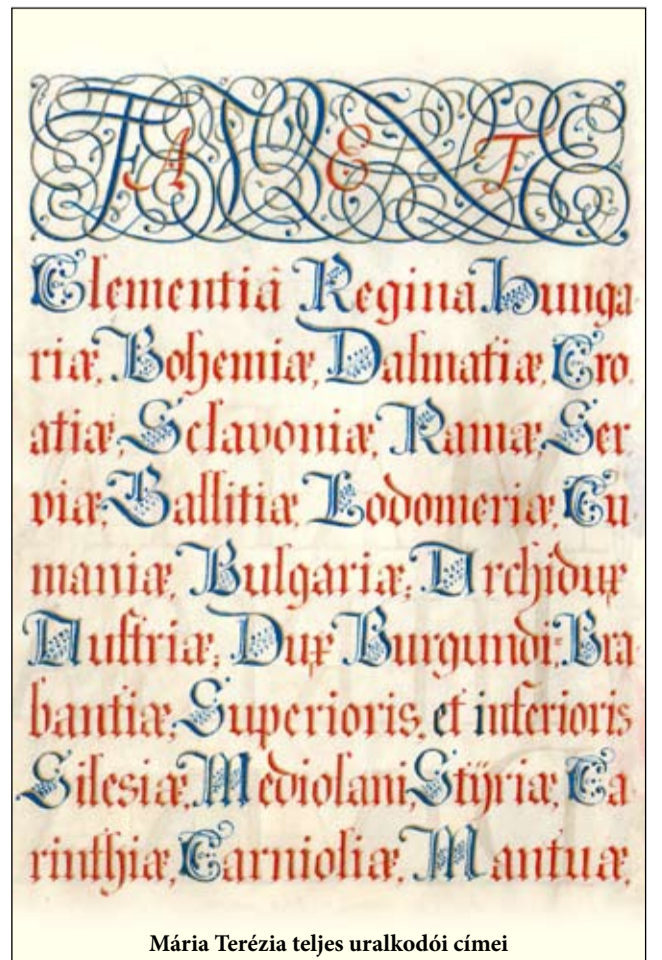 FAVENTE
Clementiâ Regina Hunga
riæ, Bohemiæ, Dalmatiæ, Cro
atiæ, Sclavoniæ, Ramæ, Ser
viæ, Gallitiæ, Lodomeriæ, Cu
maniæ, Bulgariæ, Archidux
Austriæ, Dux Burgundi: Bra
bantiæ, Superioris, et inferioris
Silesiæ, Mediolani, Stÿriæ, Ca
rinthiæ, Carnioliæ, Mantuæ,
Mária Terézia teljes uralkodói címei